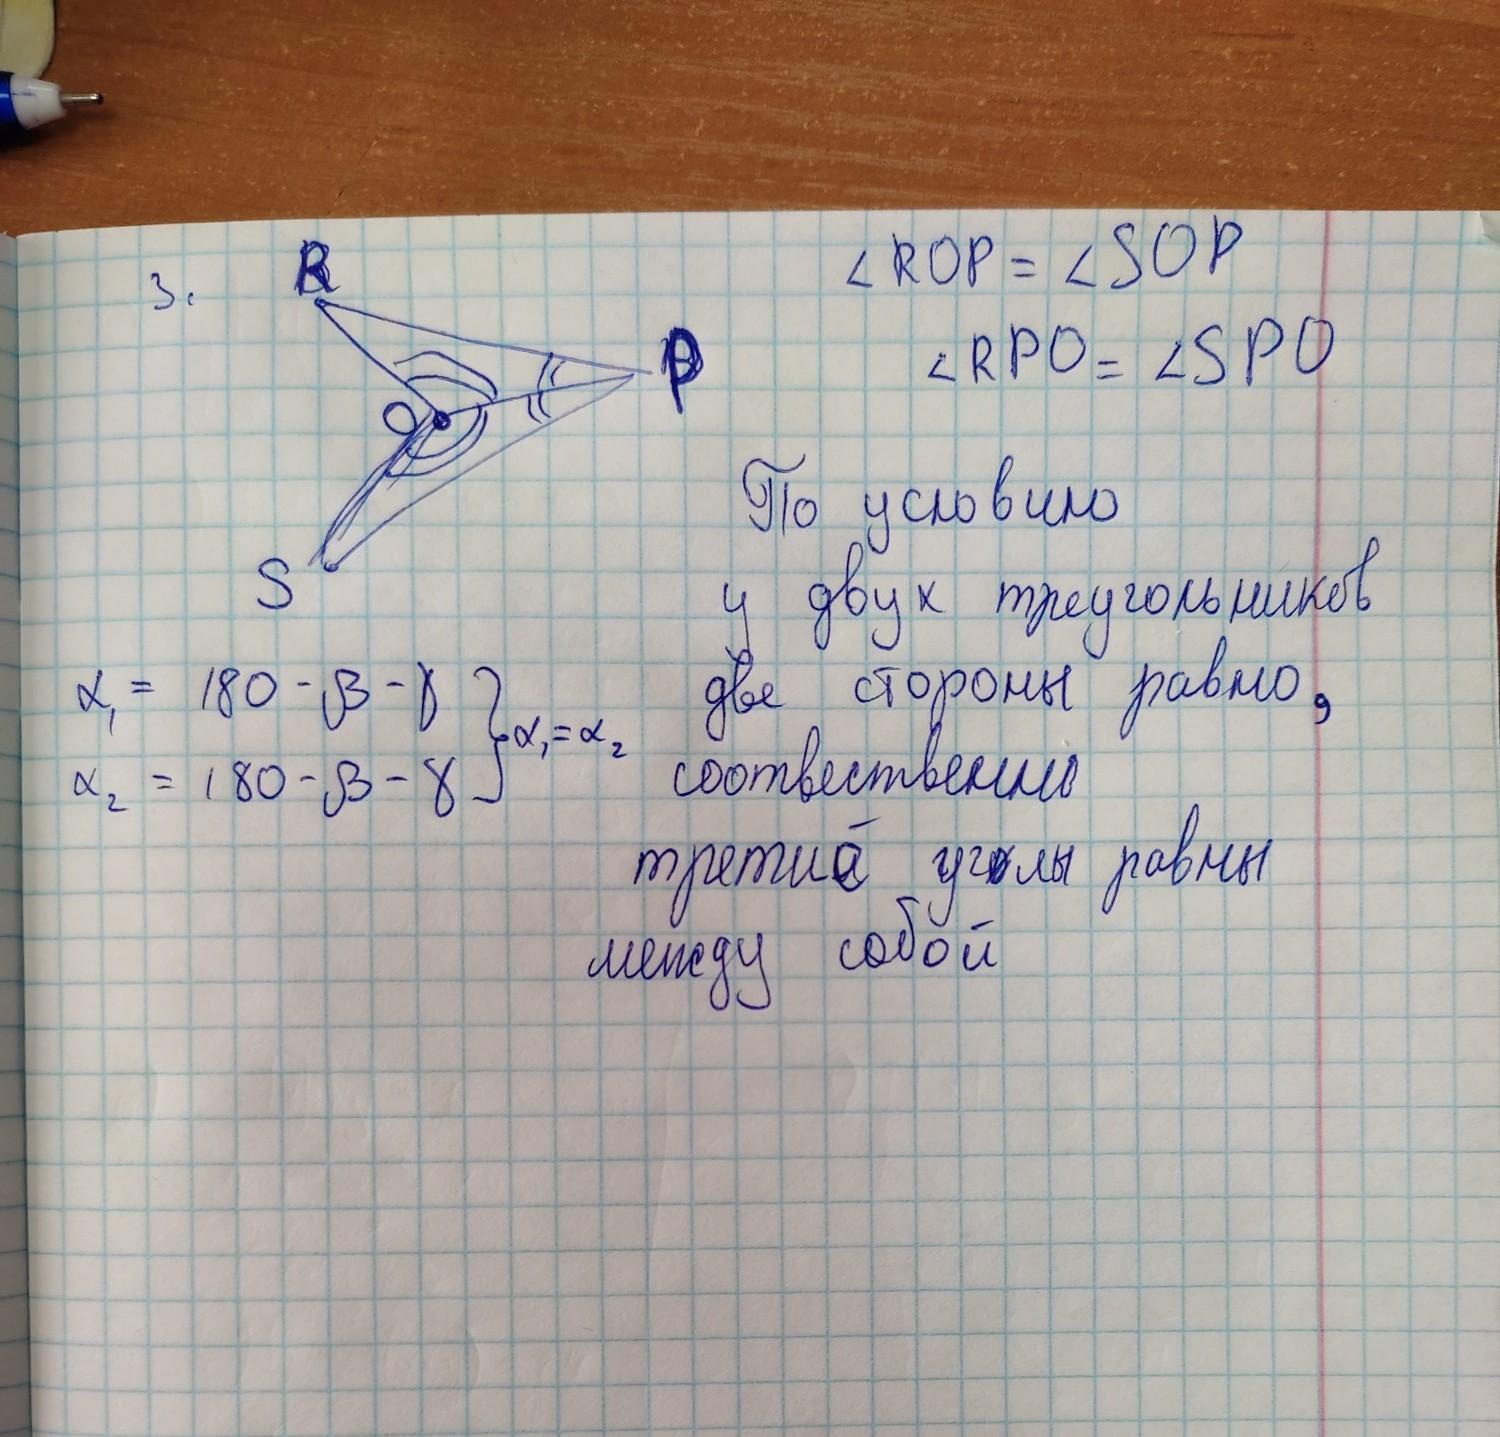 3.
R
P
O
S
∠ROP = ∠SOP
∠RPO = ∠SPO
По условию
у двух треугольников
две стороны равно,
соотвественно
третий углы равны
между собой
α₁ = 180 - β - γ
α₂ = 180 - β - γ
} α₁ = α₂